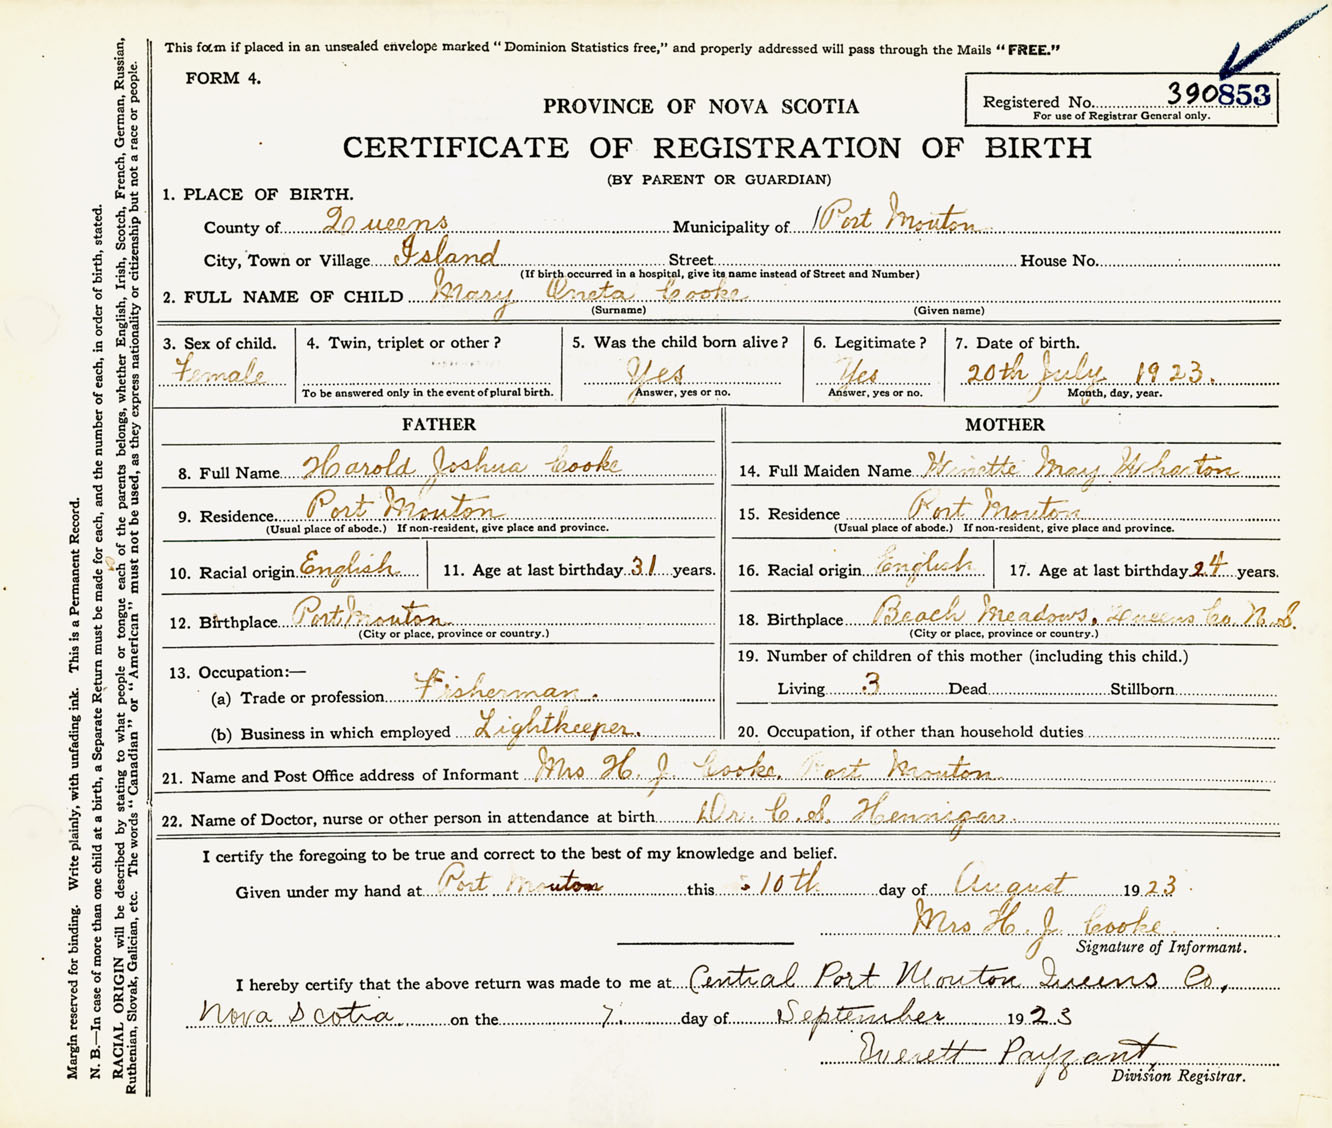 This form if placed in an unsealed envelope marked "Dominion Statistics free," and properly addressed will pass through the Mails "FREE."
FORM 4.
Registered No. 390853
For use of Registrar General only.
PROVINCE OF NOVA SCOTIA
CERTIFICATE OF REGISTRATION OF BIRTH
(BY PARENT OR GUARDIAN)
1. PLACE OF BIRTH.
County of Queens Municipality of Port Mouton
City, Town or Village Island Street House No.
(If birth occurred in a hospital, give its name instead of Street and Number)
2. FULL NAME OF CHILD Mary Oneta Cooke
(Surname) (Given name)
3. Sex of child. 4. Twin, triplet or other? 5. Was the child born alive? 6. Legitimate? 7. Date of birth.
Female Yes Yes 20th July 1923.
To be answered only in the event of plural birth. Answer, yes or no. Answer, yes or no. Month, day, year.
FATHER
8. Full Name Harold Joshua Cooke
9. Residence Port Mouton
(Usual place of abode.) If non-resident, give place and province.
10. Racial origin English 11. Age at last birthday 31 years.
12. Birthplace Port Mouton
(City or place, province or country.)
13. Occupation:—
(a) Trade or profession Fisherman.
(b) Business in which employed Lightkeeper.
MOTHER
14. Full Maiden Name May Wharton
15. Residence Port Mouton
(Usual place of abode.) If non-resident, give place and province.
16. Racial origin English 17. Age at last birthday 24 years.
18. Birthplace Beach Meadows, Queens Co. N.S.
(City or place, province or country.)
19. Number of children of this mother (including this child.)
Living 3 Dead Stillborn
20. Occupation, if other than household duties
21. Name and Post Office address of Informant Mrs H. J. Cooke. Port Mouton
22. Name of Doctor, nurse or other person in attendance at birth Dr. C. S. Hennigar.
I certify the foregoing to be true and correct to the best of my knowledge and belief.
Given under my hand at Port Mouton this 10th day of August 1923.
Mrs H. J. Cooke
Signature of Informant.
I hereby certify that the above return was made to me at Central Port Mouton Queens Co,
Nova Scotia on the 7. day of September 1923
Everett Payzant,
Division Registrar.
Margin reserved for binding. Write plainly, with unfading ink. This is a Permanent Record.
N. B.—In case of more than one child at a birth, a Separate Return must be made for each, and the number of each, in order of birth, stated.
RACIAL ORIGIN will be described by stating to what people or tongue each of the parents belongs, whether English, Irish, Scotch, French, German, Russian,
Ruthenian, Slovak, Galician, etc. The words "Canadian" or "American" must not be used, as they express nationality or citizenship but not a race or people.